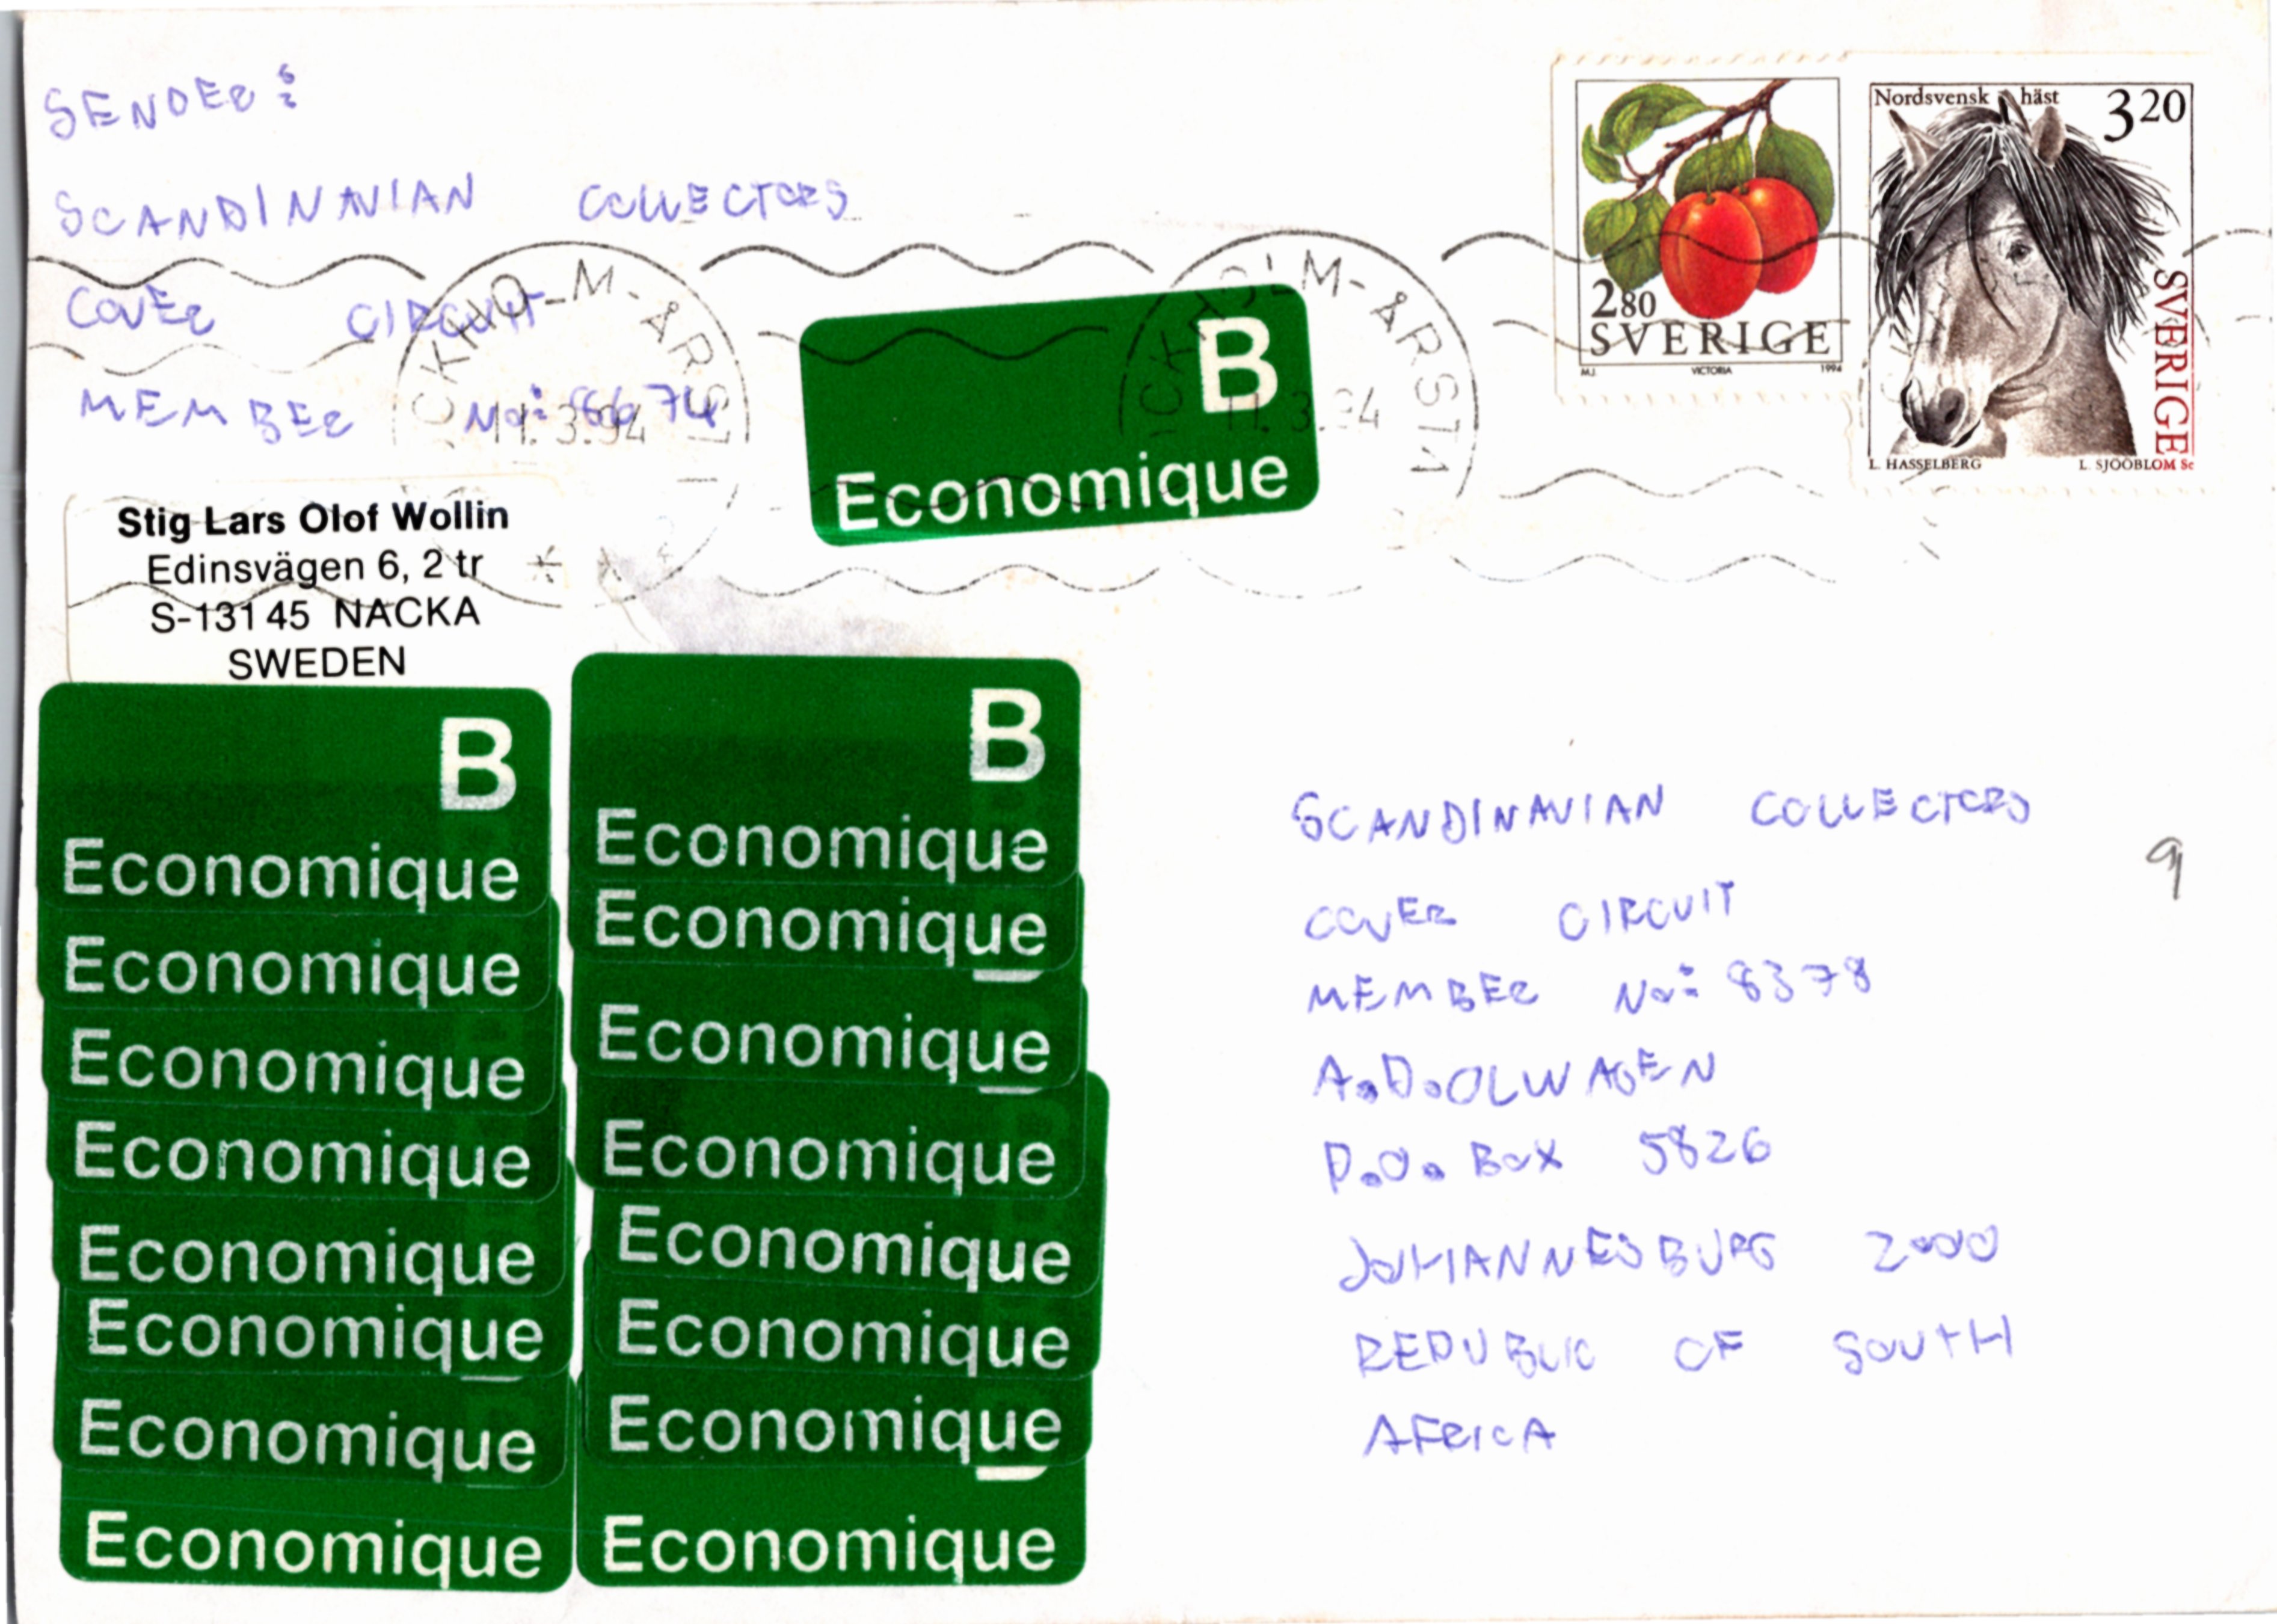 SENDER:
SCANDINAVIAN COLLECTORS
COVER CIRCUIT
MEMBER No:
Stig Lars Olof Wollin
Edinsvägen 6, 2 tr
S-131 45 NACKA
SWEDEN
STOCKHOLM-ÅRSTA 1
11.3.94
STOCKHOLM-ÅRSTA 1
11.3.94
B
Economique
280
SVERIGE
M.J. VICTORIA 1994
Nordsvensk häst 320
SVERIGE
L. HASSELBERG L. SJÖÖBLOM Sc
B
Economique
Economique
Economique
Economique
Economique
Economique
Economique
Economique
B
Economique
Economique
Economique
Economique
Economique
Economique
Economique
Economique
SCANDINAVIAN COLLECTORS
9
COVER CIRCUIT
MEMBER No: 8378
A.D.OLWAGEN
P.O. Box 5826
JOHANNESBURG 2000
REPUBLIC OF SOUTH
AFRICA